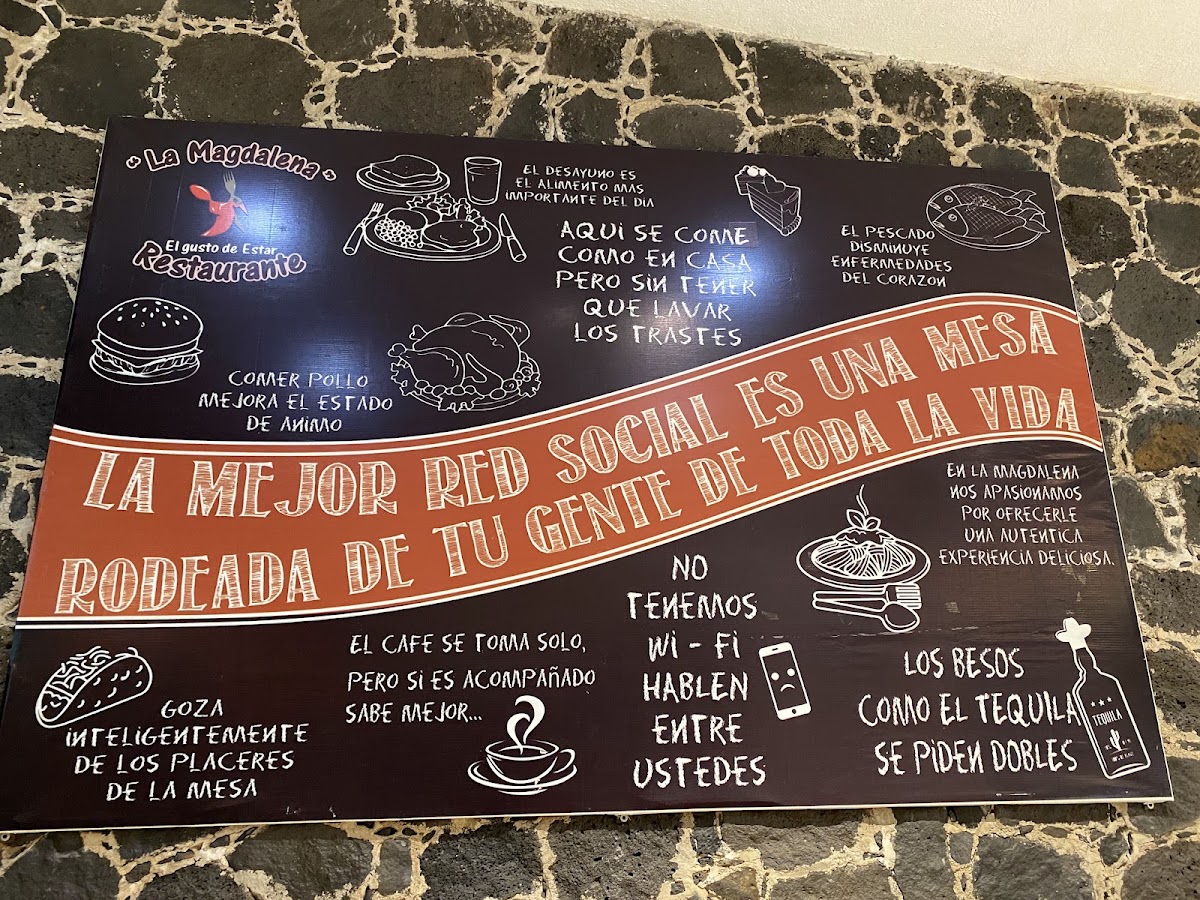 La Magdalena
El gusto de Estar
Restaurante
EL DESAYUNO ES
EL ALIMENTO MAS
IMPORTANTE DEL DIA
AQUI SE COME
COMO EN CASA
PERO SIN TENER
QUE LAVAR
LOS TRASTES
EL PESCADO
DISMINUYE
ENFERMEDADES
DEL CORAZON
COMER POLLO
MEJORA EL ESTADO
DE ANIMO
LA MEJOR RED SOCIAL ES UNA MESA
RODEADA DE TU GENTE DE TODA LA VIDA
EN LA MAGDALENA
NOS APASIONAMOS
POR OFRECERLE
UNA AUTENTICA
EXPERIENCIA DELICIOSA.
GOZA
INTELIGENTEMENTE
DE LOS PLACERES
DE LA MESA
EL CAFE SE TOMA SOLO,
PERO SI ES ACOMPAÑADO
SABE MEJOR...
NO
TENEMOS
Wi - Fi
HABLEN
ENTRE
USTEDES
LOS BESOS
COMO EL TEQUILA
SE PIDEN DOBLES
TEQUILA